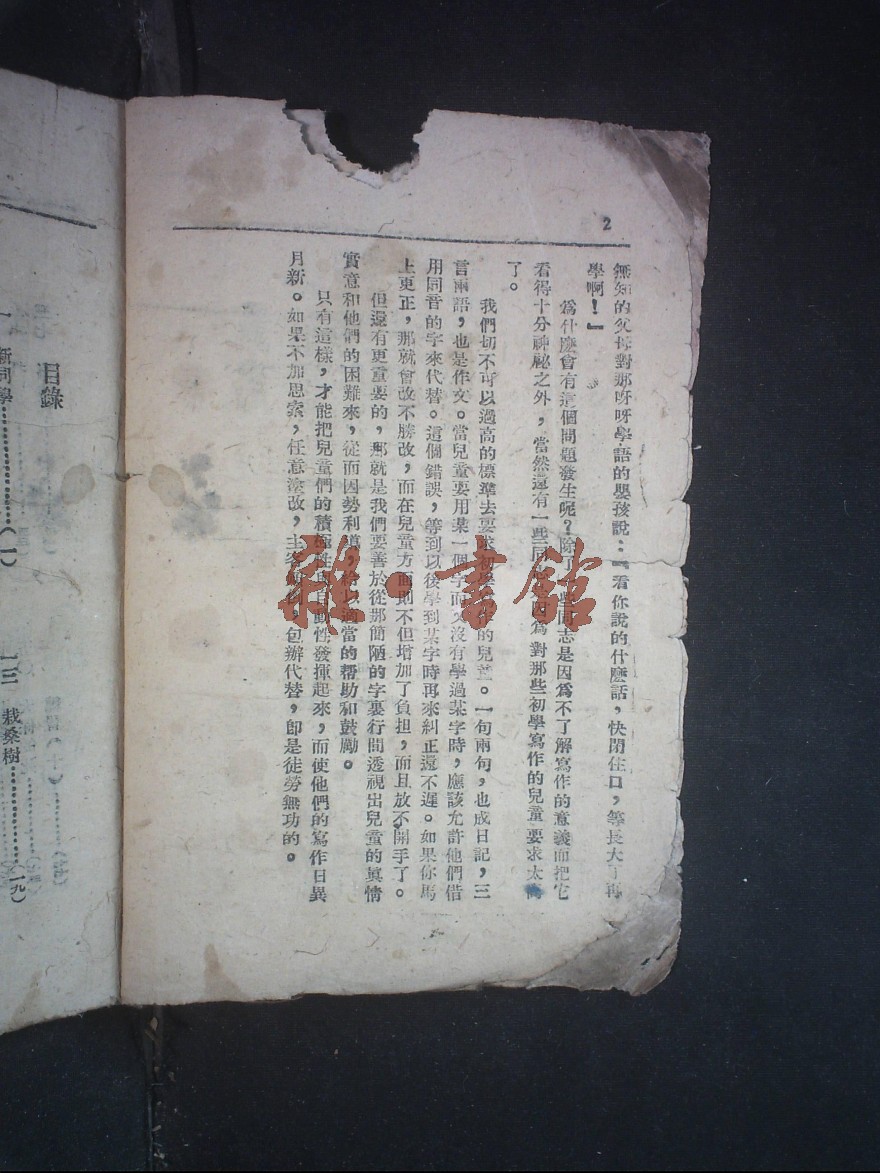 2
無知的父母對那呀呀學語的嬰孩說：『看你說的什麼話，快閉住口，等長大了再
學啊！』
爲什麼會有這個問題發生呢？除了一些同志是因爲不了解寫作的意義而把它
看得十分神祕之外，當然還有一些同志是因爲對那些初學寫作的兒童要求太高
了。
我們切不可以過高的標準去要求初學寫作的兒童。一句兩句，也成日記，三
言兩語，也是作文。當兒童要用某一個字而又沒有學過某字時，應該允許他們借
用同音的字來代替。這個錯誤，等到以後學到某字時再來糾正還不遲。如果你馬
上更正，那就會改不勝改，而在兒童方面則不但增加了負担，而且放不開手了。
但還有更重要的，那就是我們要善於從那簡陋的字裏行間透視出兒童的眞情
實意和他們的困難來，從而因勢利導，給以適當的帮助和鼓勵。
只有這樣，才能把兒童們的積極性與自動性發揮起來，而使他們的寫作日異
月新。如果不加思索，任意塗改，主客倒，包辦代替，卽是徒勞無功的。
目錄
一 新同學…………(一)
一三 栽桑樹…………(一九)
雜·書館